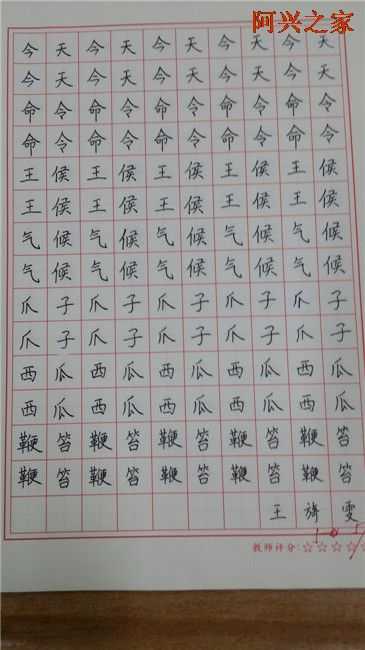 阿兴之家
今天今天今天今天今天
今天今天今天今天今天
命令命令命令命令命令
命令命令命令命令命令
王侯王侯王侯王侯王侯
王侯王侯王侯王侯王侯
气候气候气候气候气候
气候气候气候气候气候
爪子爪子爪子爪子爪子
爪子爪子爪子爪子爪子
西瓜西瓜西瓜西瓜西瓜
西瓜西瓜西瓜西瓜西瓜
鞭笞鞭笞鞭笞鞭笞鞭笞
鞭笞鞭笞鞭笞鞭笞鞭笞
王 雯
教师评分:☆☆☆☆